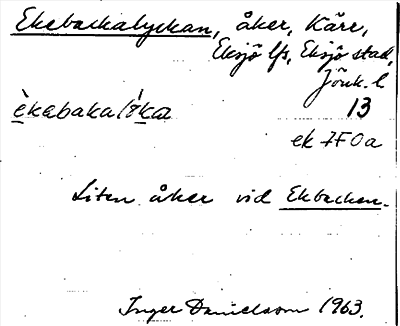 Ekebackalyckan, åker, Kärr,
Eksjö lfs, Eksjö stad,
Jönk. l
13
èkebaka lỳka
ek 7F0a
Liten åker vid Ekbacken.
Inger Danielsson 1963.